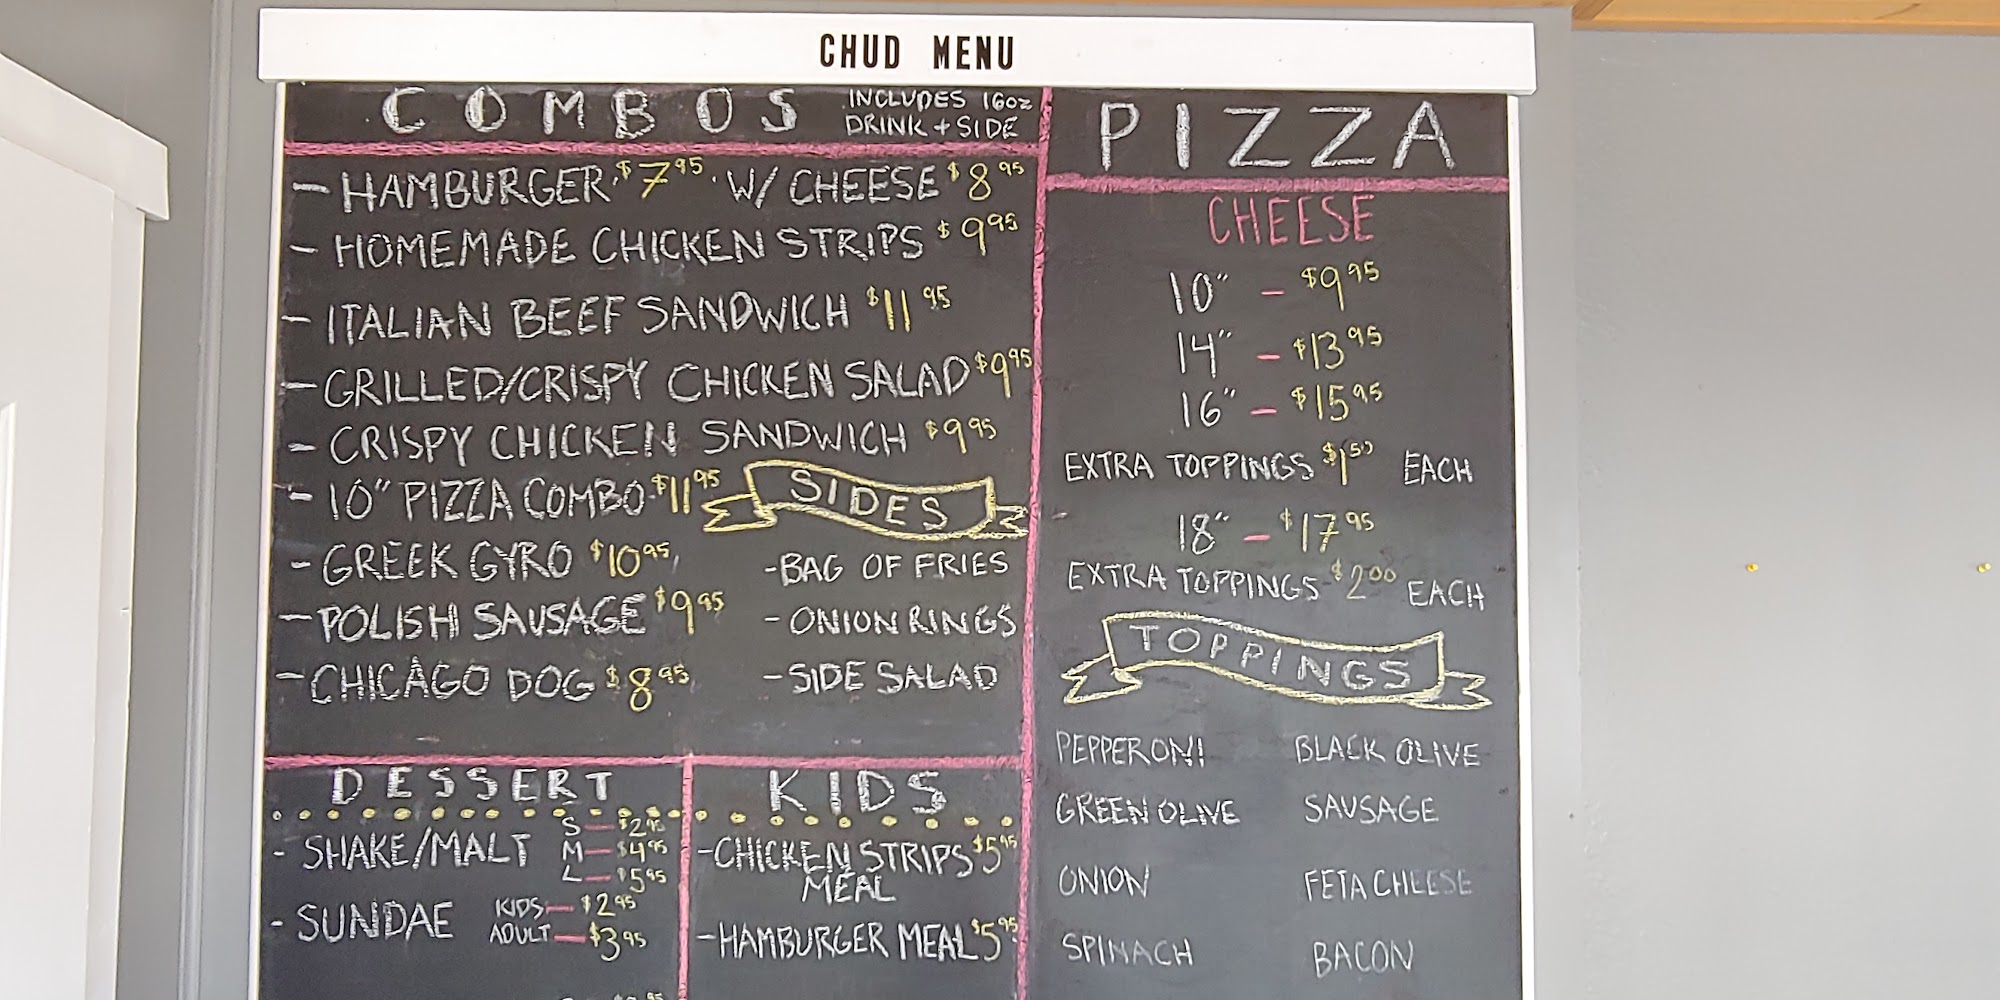 CHUD MENU
COMBOS INCLUDES 16oz
DRINK + SIDE
- HAMBURGER $7.95 W/ CHEESE $8.95
- HOMEMADE CHICKEN STRIPS $9.95
- ITALIAN BEEF SANDWICH $11.95
- GRILLED/CRISPY CHICKEN SALAD $9.95
- CRISPY CHICKEN SANDWICH $9.95
- 10" PIZZA COMBO $11.95
- GREEK GYRO $10.95
- POLISH SAUSAGE $9.95
- CHICAGO DOG $8.95
SIDES
- BAG OF FRIES
- ONION RINGS
- SIDE SALAD
DESSERT
- SHAKE/MALT S - $2.95
M - $4.95
L - $5.95
- SUNDAE KIDS - $2.95
ADULT - $3.95
KIDS
- CHICKEN STRIPS $5.95
MEAL
- HAMBURGER MEAL $5.95
PIZZA
CHEESE
10" - $9.95
14" - $13.95
16" - $15.95
EXTRA TOPPINGS $1.50 EACH
18" - $17.95
EXTRA TOPPINGS $2.00 EACH
TOPPINGS
PEPPERONI BLACK OLIVE
GREEN OLIVE SAUSAGE
ONION FETA CHEESE
SPINACH BACON